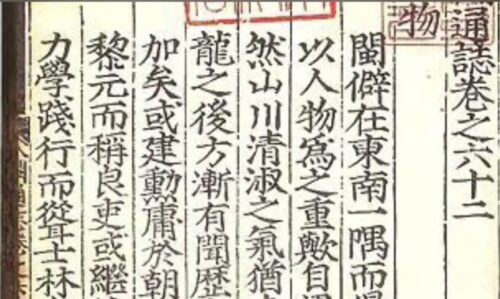 通誌卷之六十二
物
閩僻在東南一隅而
以人物為之重歟自
然山川清淑之氣猶
龍之後方漸有聞歷
加矣或建勳庸於朝
黎元而稱良吏或繼
力學踐行而從耳士林